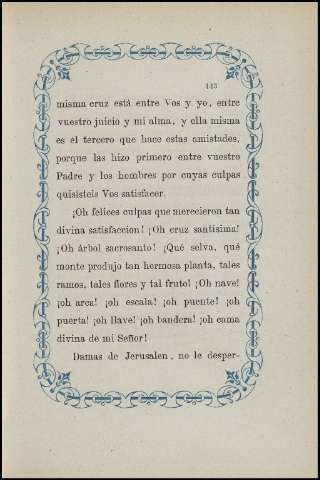 143
misma cruz está entre Vos y yo, entre
vuestro juicio y mi alma, y ella misma
es el tercero que hace estas amistades,
porque las hizo primero entre vuestro
Padre y los hombres por cuyas culpas
quisisteis Vos satisfacer.
¡Oh felices culpas que merecieron tan
divina satisfaccion! ¡Oh cruz santísima!
¡Oh árbol sacrosanto! ¡Qué selva, qué
monte produjo tan hermosa planta, tales
ramos, tales flores y tal fruto! ¡Oh nave!
¡oh arca! ¡oh escala! ¡oh puente! ¡oh
puerta! ¡oh llave! ¡oh bandera! ¡oh cama
divina de mi Señor!
Damas de Jerusalen, no le desper-